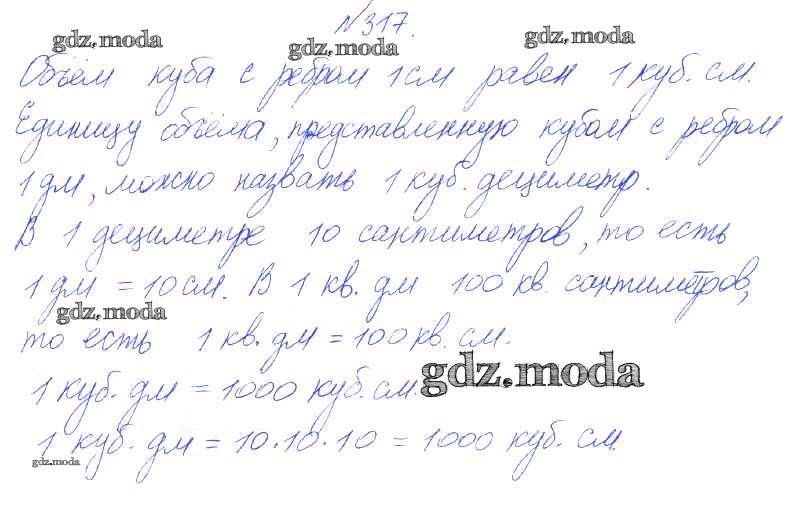 №317.
gdz.moda gdz.moda gdz.moda
Объём куба с ребром 1 см равен 1 куб. см.
Единицу объёма, представленную кубом с ребром
1 дм, можно назвать 1 куб. дециметр.
В 1 дециметре 10 сантиметров, то есть
1 дм = 10 см. В 1 кв. дм 100 кв. сантиметров,
gdz.moda
то есть 1 кв. дм = 100 кв. см.
gdz.moda
1 куб. дм = 1000 куб. см.
1 куб. дм = 10·10·10 = 1000 куб. см
gdz.moda